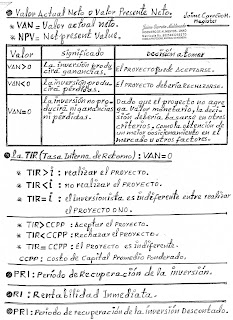 Valor Actual Neto o Valor Presente Neto.
* VAN = Valor actual Neto.
* NPV = Net present Value.
Jaime
Magíster
Valor
significado
decisión a tomar
VAN>0
La inversión produciría ganancias.
El PROYECTO puede Aceptarse.
VAN<0
La inversión produciría pérdidas.
El PROYECTO debería Rechazarse.
VAN=0
La inversión no produciría ni ganancias ni pérdidas.
Dado que el proyecto no agrega valor monetario, la decisión debería basarse en otros criterios, como la obtención de un mejor posicionamiento en el mercado u otros factores.
La TIR (Tasa Interna de Retorno): VAN=0
* TIR>i : realizar el PROYECTO.
* TIR<i : no realizar el PROYECTO.
* TIR=i : el inversionista es indiferente entre realizar
el PROYECTO o NO.
* TIR>CCPP : Aceptar el PROYECTO.
* TIR<CCPP : Rechazar el PROYECTO.
* TIR=CCPP : El PROYECTO es indiferente.
CCPP : costo de Capital Promedio Ponderado.
PRI : Período de Recuperación de la inversión.
RI : Rentabilidad Inmediata.
: Período de recuperación de la inversión Descontado.